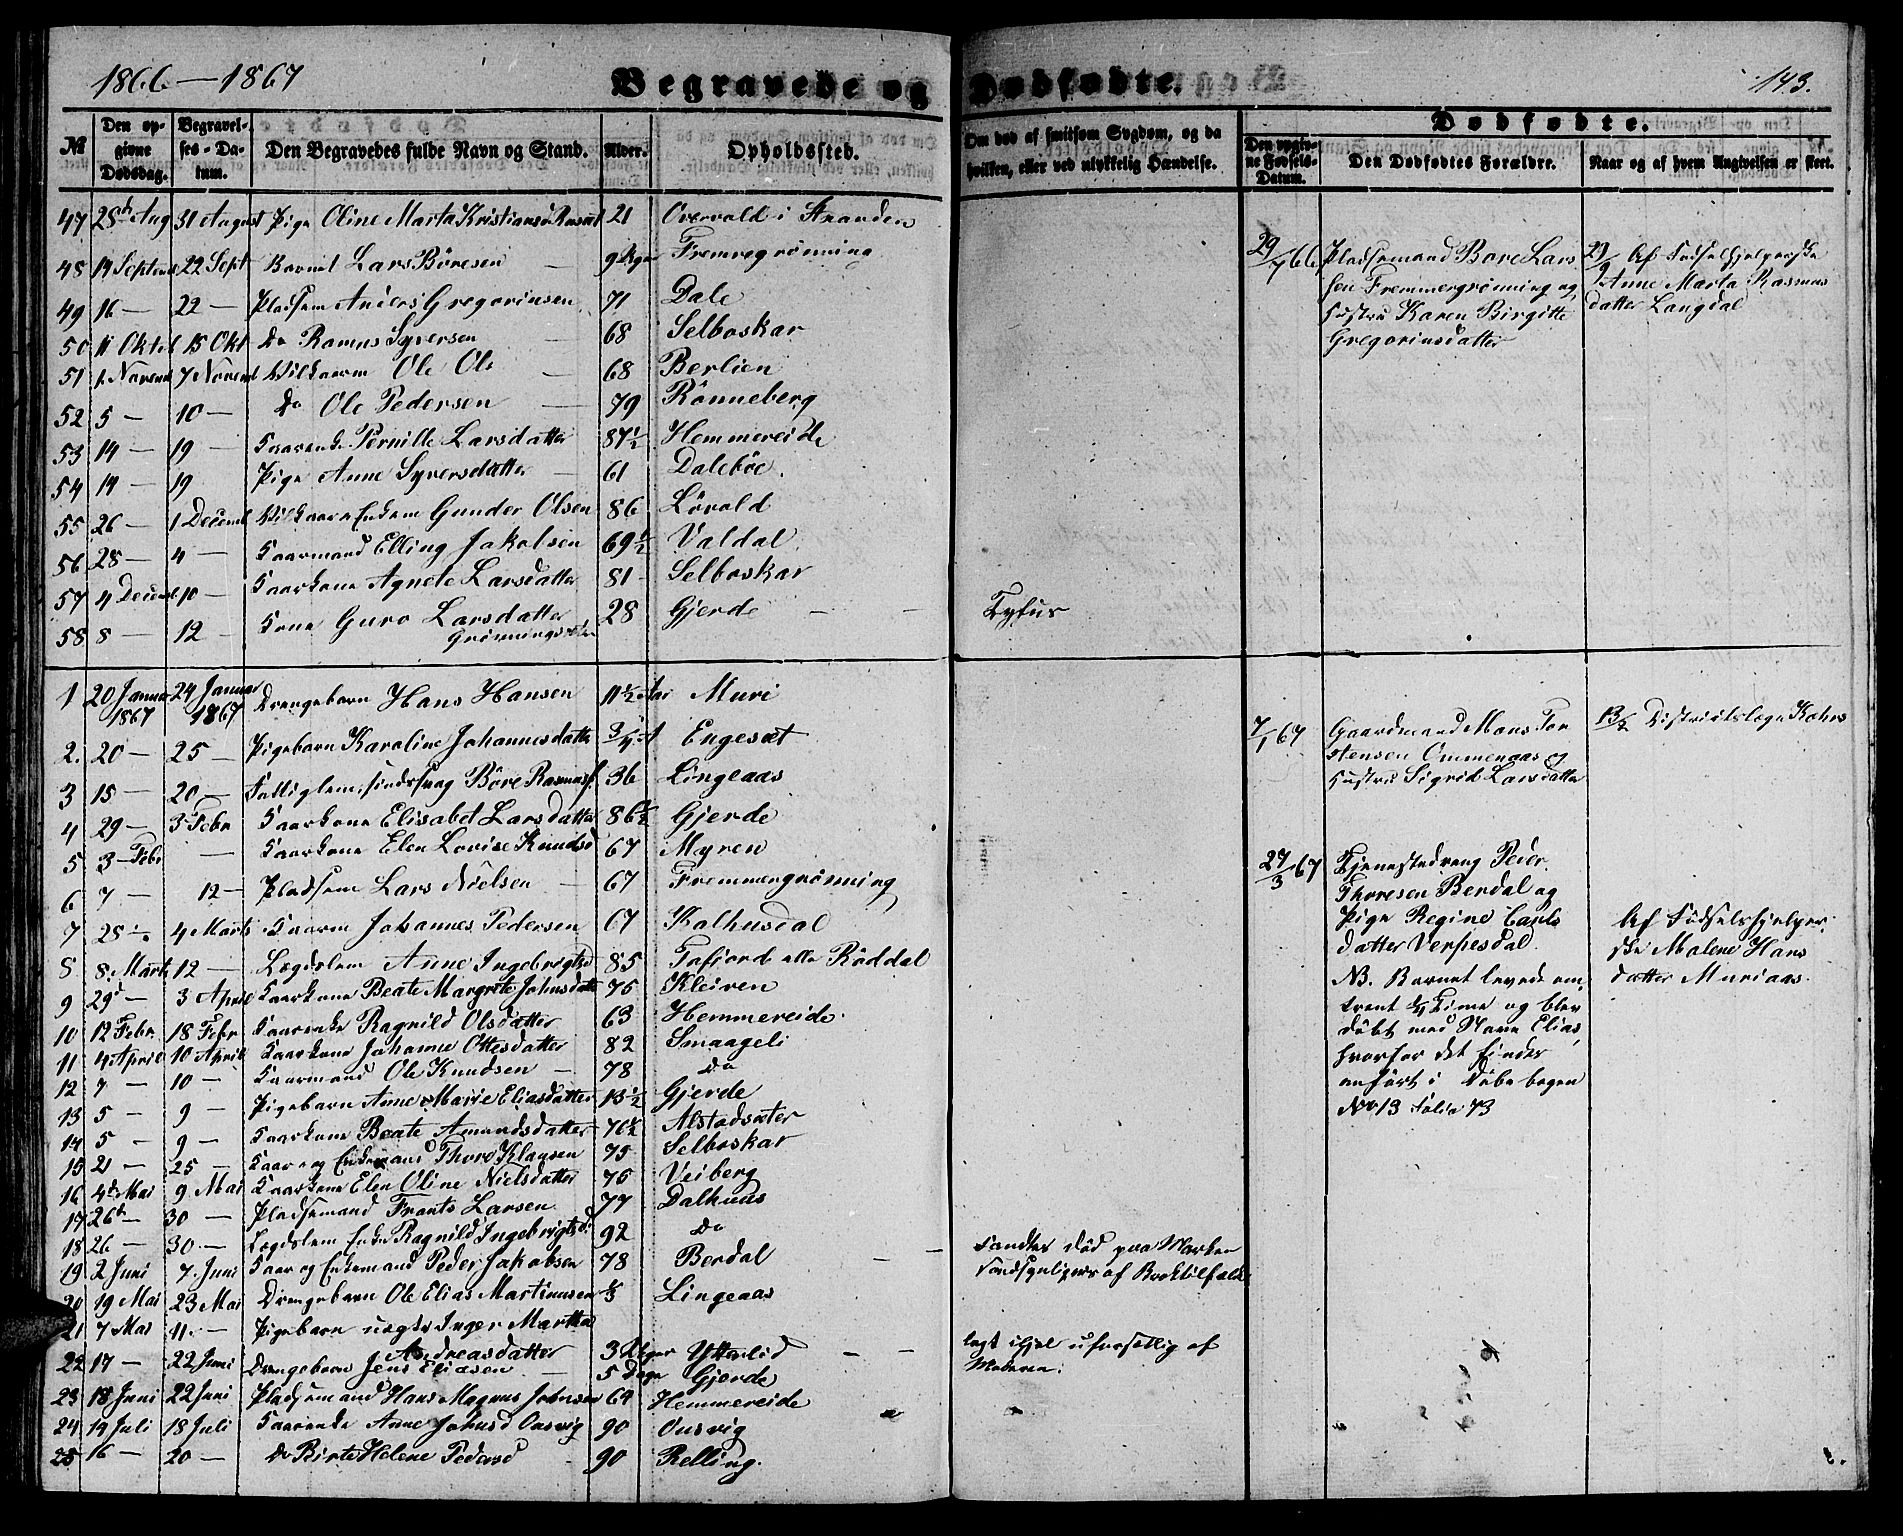 1866 — 1867
Begravede og Dødfødte.
143.
№ Den opgivne Dødsdag. Begravelses-Datum. Den Begravedes fulde Navn og Stand. Alder. Opholdssted. Om død af smitsom Sygdom, og da hvilken, eller ved ulykkelig Hændelse.
Dødfødte.
Den opgivne Fødsels-Datum. Den Dødfødtes Forældre. Naar og af hvem Angivelsen er skeet.
47 28de Aug 31 August Pige Oline Marta 21 Overvold i Stranden
48 14 Septemb 22 Sept Lars Böresen 9 Fremregrönning
49 16 — 22 — Pladsem Anders Gregoriusen 71 Dale
50 11 Oktob 15 Okt Do Rasmus Syversen 68 Selboskar
51 1 Novemb 7 Novemb Vilkaarm Ole Ols 68 Berlien
52 5 — 10 — Do Ole Pedersen — 79 Rönneberg
53 14 — 19 — Kaarenke Pernille Larsdatter 87½ Hemmereide
54 14 — 19 Pige Anne Syversdatter — 61 Daleböe
55 26 — 1 Decemb Vilkaar Enkem Gunder Olsen 86 Lövold
56 28 — 4 — Kaarmand Elling Jakobsen 69½ Valdal
57 4 Decemb 10 — Kaarkone Agnete Larsdatter 81 Selboskar
58 8 — 12 — Kone Guro Larsdatter 28 Gjerde — — Tyfus
Grönningsæter
29/7 66 Pladsemand Bore Lars
sen Fremmergrønning og
Hustru Karen Birgitte
Gregoriusdatter
29/9 Af Fødselhjelperske
Anne Marta Rasmus
datter Langdal
1 20 Januar 1867 24 Januar 1867 Drengebarn Hans Hansen 11½ Aar Muri
2. 20 — 25 — Pigebarn Karoline Johannesdatter 3/4 A Engeset
3 15 — 20 — Fattiglem, sindssvag Böre Rasmuss. 36 Lingeaas
4 29 — 3 Febr Kaarkone Elisabet Larsdatter 86½ Gjerde
5 3 Febr — Kaarkone Elen Lovise Knudsd 67 Myren
6 7 — 12 — Pladsem Lars Nielsen — 67 Fremmergrönning
7 28 4 Marts Kaarm Johannes Pedersen 67 Kalhusdal
8 8. Marts 12 — Lægdslem Anne Ingebrigtsd 85 Tafjord elle Röddal
9 29d — 3 April Kaarkone Beate Margrete Johnsdatter 75 Kleiven
10 12 Febr. 18 Febr Kaarenke Ragnild Olsdatter 63 Hemmereide
11 4 April 10 April Kaarkone Johanne Ottesdatter 82 Smaageli
12 7 — 10 — Kaarmand Ole Knudsen — 78 Do
13 5 — 9 — Pigebarn Anne Marie Eliasdatter 13½ Gjerde
14 5 — 9 — Kaarkone Beate Amundsdatter 76½ Alstadsæter
15 21 — 25 — Kaar og Enkemand Thore Klausen 75 Selboskar
16 4de Mai 9 Mai Kaarkone Elen Oline Nielsdatter 75 Veiberg
17 26d — 30 — Pladsemand Frants Larsen 77 Dalhuus
18 26 — 30 — Lægdslem Enke Ragnild Ingebrigtsd. 92 Do
19 2 Juni 7. Juni Kaar og Enkemand Peder Jakobsen 78 Berdal — — Fandtes död paa Marken
Sandsynligvis af
20 19 Mai 23 Mai Drengebarn Ole Elias Martinusen Lingeaas
21 7 Mai 11. — Pigebarn uægte Inger Martha
Andreasdatter 3 Uger Ytterlid — — lagt ihjel uforsetlig af
Moderen.
22 17 — 22 Juni Drengebarn Jens Eliasen — 5 Dage Gjerde
23 18 Juni 22 Juni Pladsemand Hans Magnus Johnsen 69 Hemmereide
24 14 Juli 18 Juli Kaarenke Anne Johnsd Onsvig 90 Onsvig
25 16 — 20 — Do Birte Helene Pedersd 90 Relling.
7/1 67 Gaardmand Mons Tor
stensen Ommenaas og
Hustru Sigrid Larsdatter
13/2 Districtslæge Kahrs
27/3 67 Tjenestedreng Peder
Thoresen Berdal og
Pige Regine Carls
datter Verpesdal.
NB. Barnet levede om
trent ¼ Time og blev
döbt med Navn Elias,
hvorfor det findes
anfört i Döbebogen
No 13 Folio 43
Af Födselshjelper
ske Malene Hans
datter Muriaas.